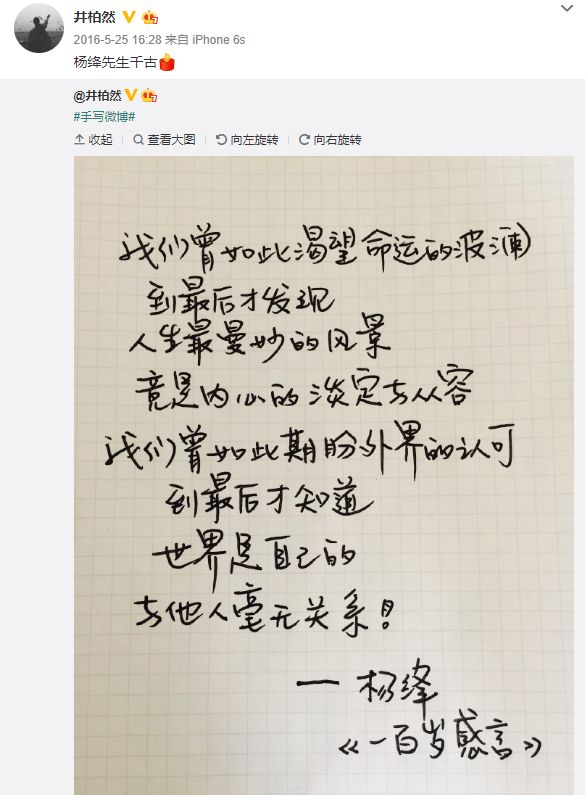 井柏然
2016-5-25 16:28 来自 iPhone 6s
杨绛先生千古
@井柏然
#手写微博#
收起 查看大图 向左旋转 向右旋转
我们曾如此渴望命运的波澜
到最后才发现
人生最曼妙的风景
竟是内心的淡定与从容
我们曾如此期盼外界的认可
到最后才知道
世界是自己的
与他人毫无关系!
— 杨绛
《一百岁感言》